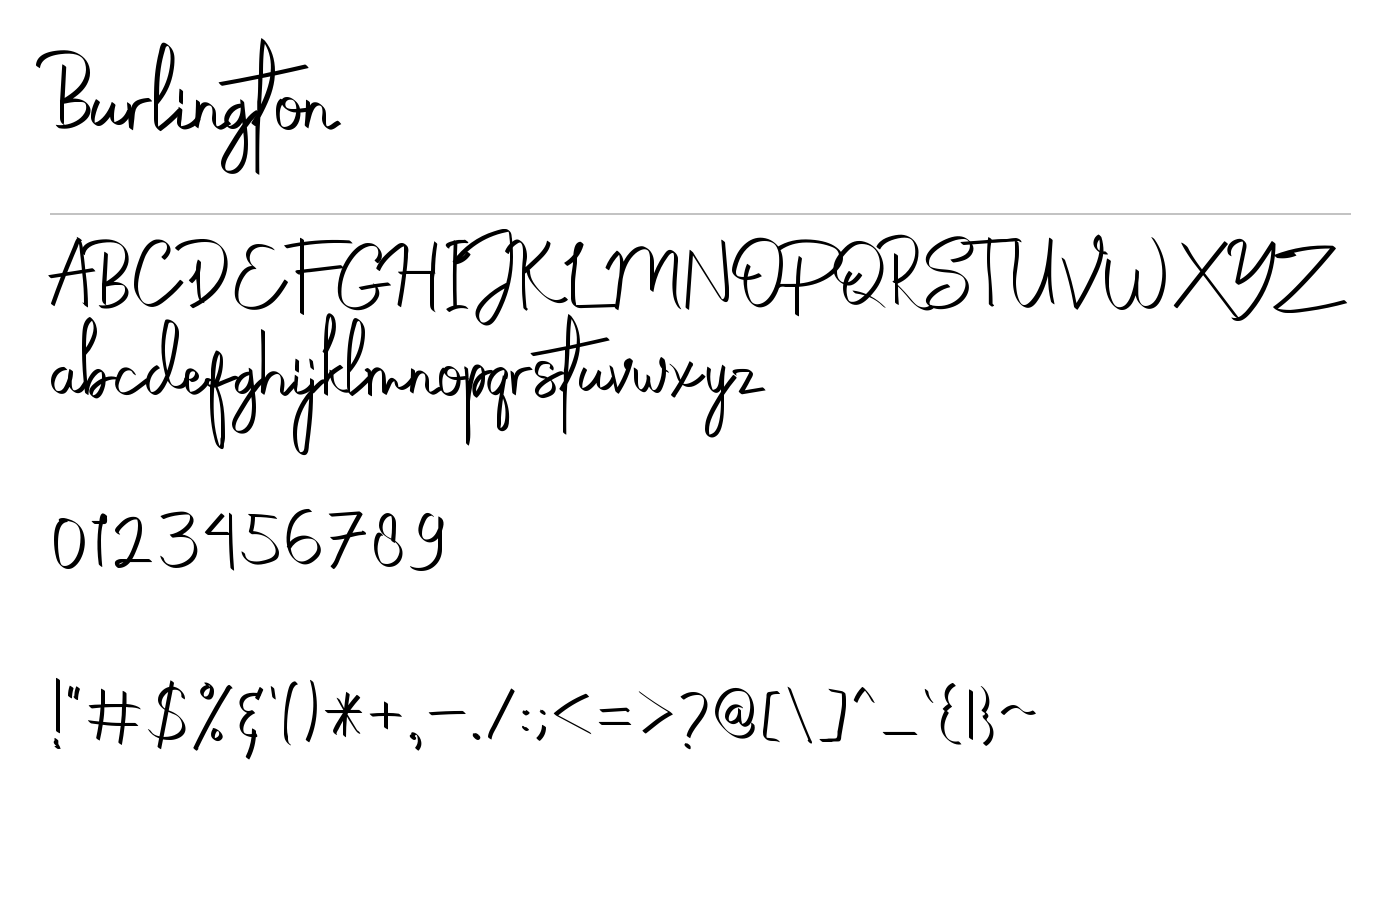 Burlington
ABCDEFGHIJKLMNOPQRSTUVWXYZ
abcdefghijklmnopqrstuvwxyz
0123456789
!"#$%&'()*+,-./:;<=>?@[\]^_`{|}~